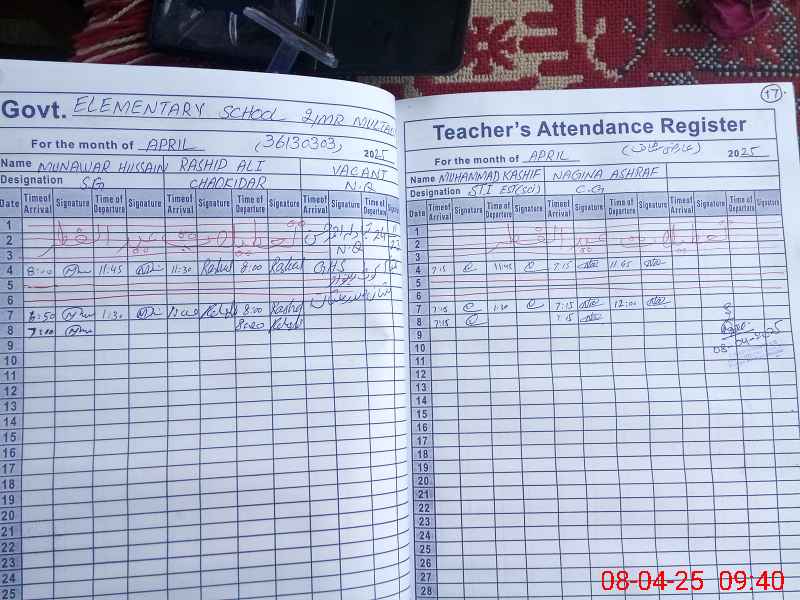 Govt. ELEMENTARY SCHOOL 21MR MULTAN
For the month of APRIL (36130303) 2025
Name MUNAWAR HUSSAIN RASHID ALI VACANT
Designation S.G CHAOKIDAR N.Q
Date Time of Arrival Signature Time of Departure Signature Time of Arrival Signature Time of Departure Signature Time of Arrival Signature Time of Departure Signature
1
2 تعطیلات عید الفطر
3 N.Q
4 8:00 11:45 11:30 Rashid 8:00 Rashid GHS
5
6
7 1:30 Rashid 8:00 Rashid
8 7:00 8:00 Rashid
9
10
11
12
13
14
15
16
17
18
19
20
21
22
23
24
25
17
Teacher's Attendance Register
For the month of APRIL 2025
Name MUHAMMAD KASHIF NAGINA ASHRAF
Designation STI EST(sci) C.G
Date Time of Arrival Signature Time of Departure Signature Time of Arrival Signature Time of Departure Signature Time of Arrival Signature Time of Departure Signature
1
2 تعطیلات عید الفطر
3
4 7:15 11:45 7:15 11:45
5
6
7 7:15 7:15 12:00
8 7:15 7:15
9
10 08-04-2025
11
12
13
14
15
16
17
18
19
20
21
22
23
24
25
26
27
28
08-04-25 09:40